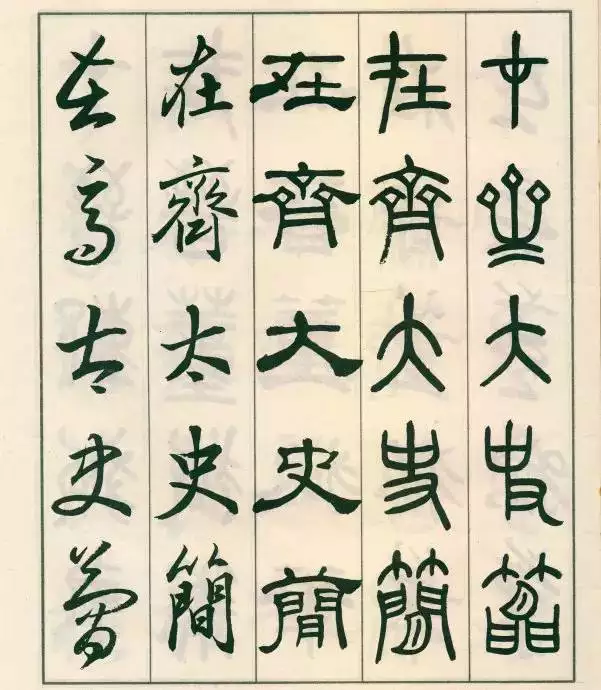 在齊大史簡
在齊大史簡
在齊大史簡
在齊太史簡
在齊太史簡